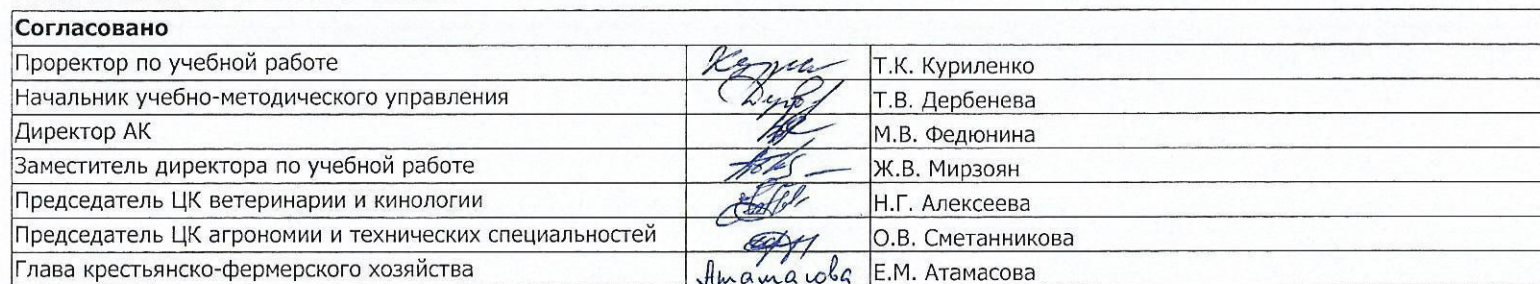 Согласовано
Проректор по учебной работе Т.К. Куриленко
Начальник учебно-методического управления Т.В. Дербенева
Директор АК М.В. Федюнина
Заместитель директора по учебной работе Ж.В. Мирзоян
Председатель ЦК ветеринарии и кинологии Н.Г. Алексеева
Председатель ЦК агрономии и технических специальностей О.В. Сметанникова
Глава крестьянско-фермерского хозяйства Атамасова Е.М. Атамасова